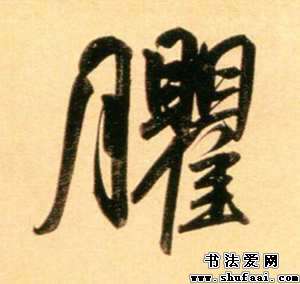 臞
书法爱网
www.shufaai.com